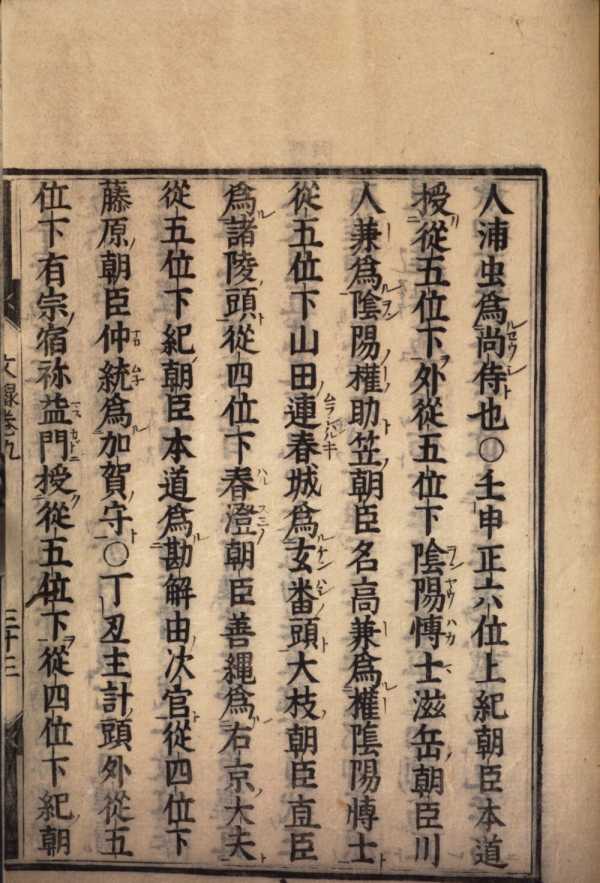 人浦虫爲尚侍也○壬申正六位上紀朝臣本道
授從五位下外從五位下陰陽博士滋岳朝臣川
人兼爲陰陽權助笠朝臣名高兼爲權陰陽博士
從五位下山田連春城爲玄番頭大枝朝臣直臣
爲諸陵頭從四位下春澄朝臣善繩爲右京大夫
從五位下紀朝臣本道爲勘解由次官從四位下
藤原朝臣仲統爲加賀守○丁丑主計頭外從五
位下有宗宿祢益門授從五位下從四位下紀朝
文録卷九
三十三